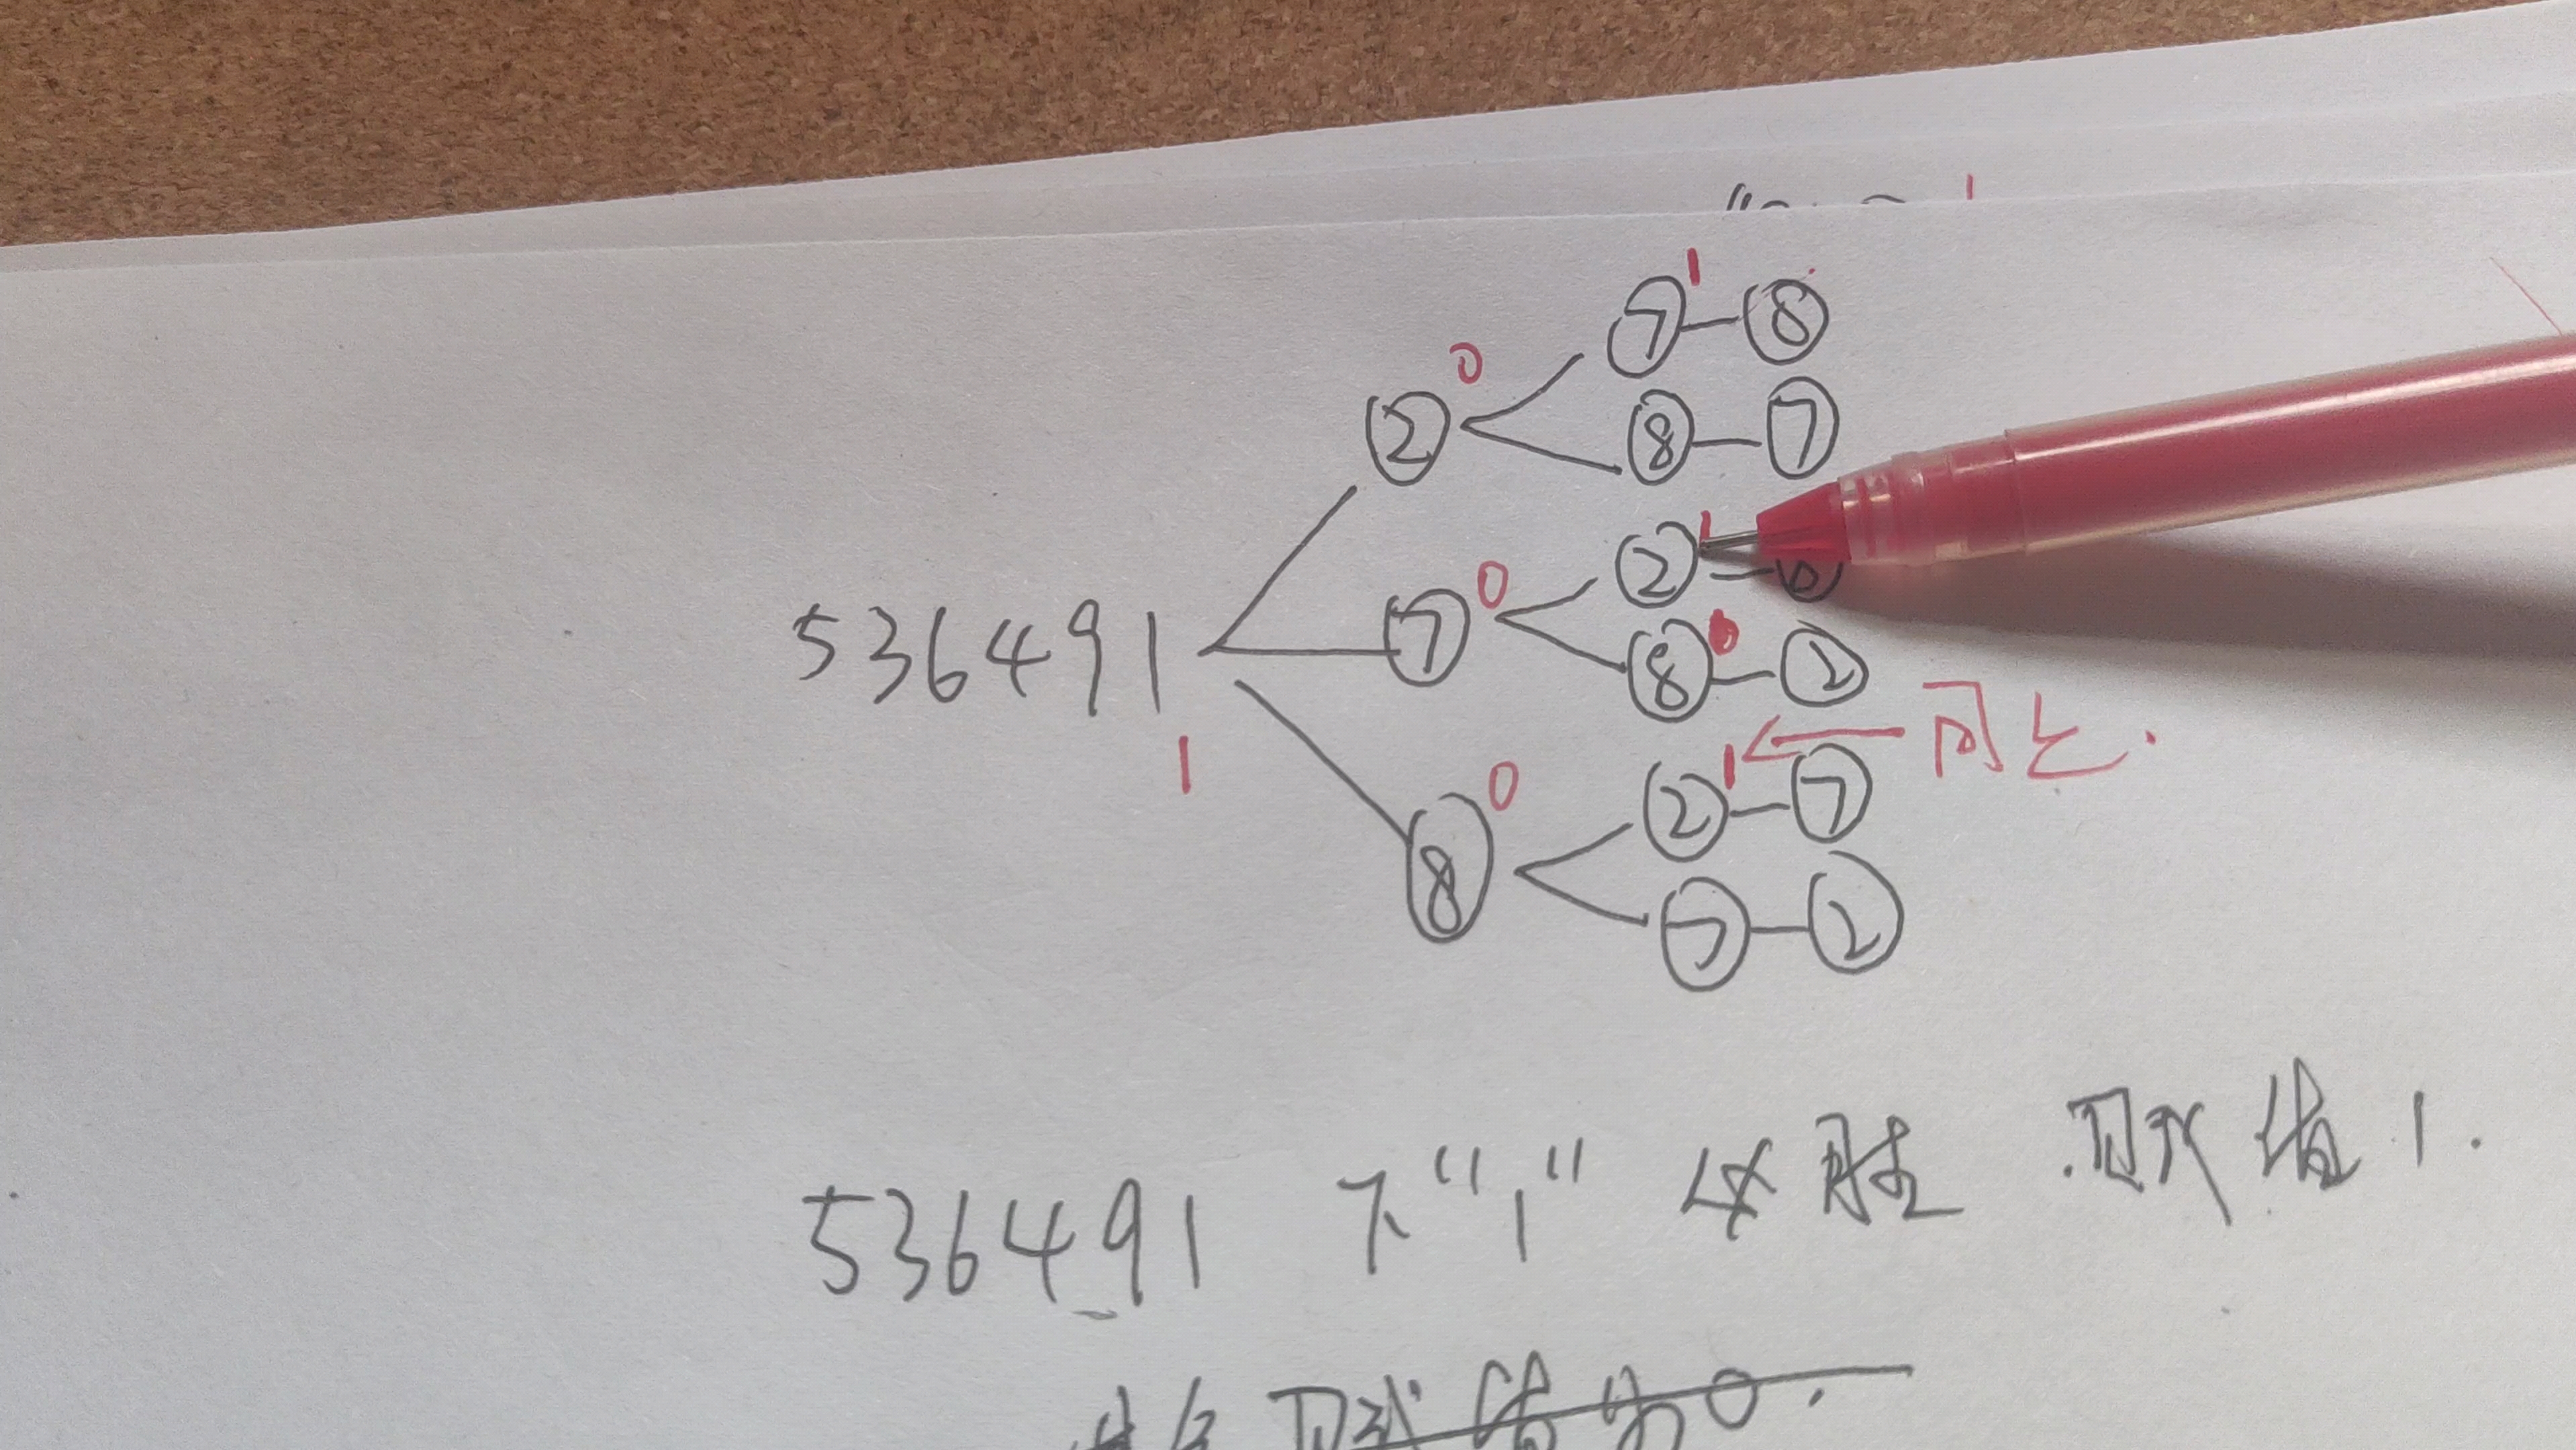 1
1
⑦—⑧
0
②
⑧—⑦
1
②—
0
⑦
0
⑧—②
536491
1
同上.
1
②—⑦
0
⑧
⑦—②
536491 下“1”必胜 .赋值1.
赋值为0.